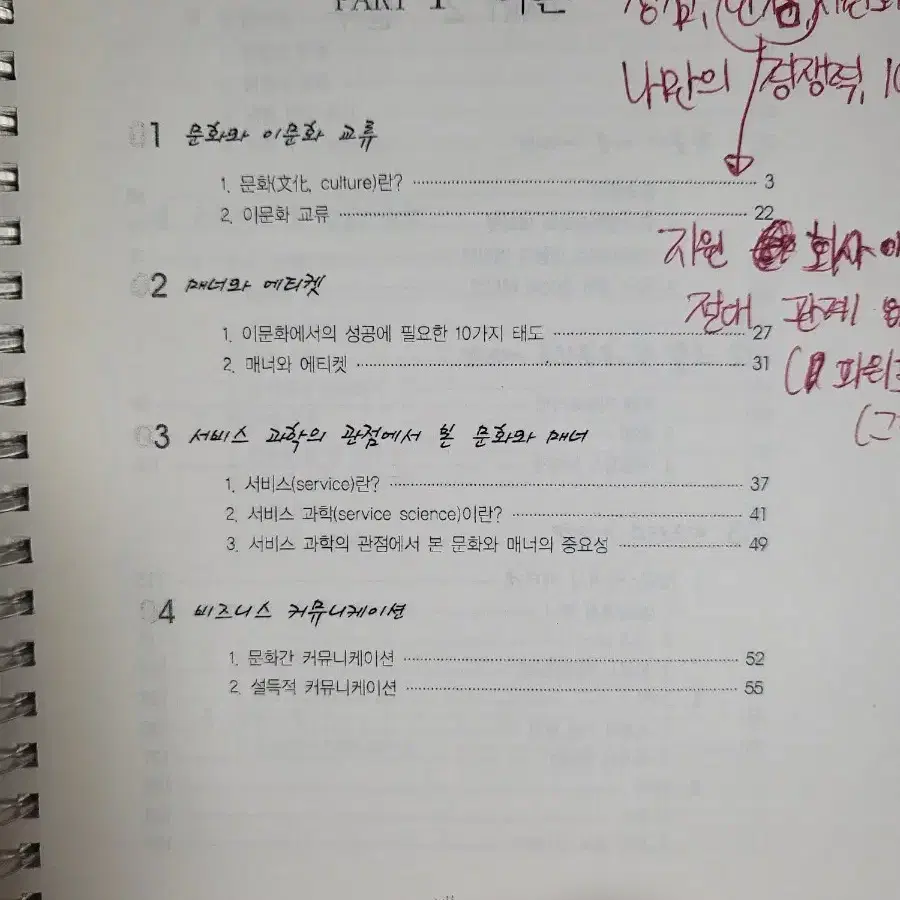 PART I 이론
장점, 단점,
나만의 경쟁력,
01 문화와 이문화 교류
1. 문화(文化, culture)란? 3
2. 이문화 교류 22
지원 회사에
절대 관계
02 매너와 에티켓
1. 이문화에서의 성공에 필요한 10가지 태도 27
2. 매너와 에티켓 31
03 서비스 과학의 관점에서 본 문화와 매너
1. 서비스(service)란? 37
2. 서비스 과학(service science)이란? 41
3. 서비스 과학의 관점에서 본 문화와 매너의 중요성 49
04 비즈니스 커뮤니케이션
1. 문화간 커뮤니케이션 52
2. 설득적 커뮤니케이션 55